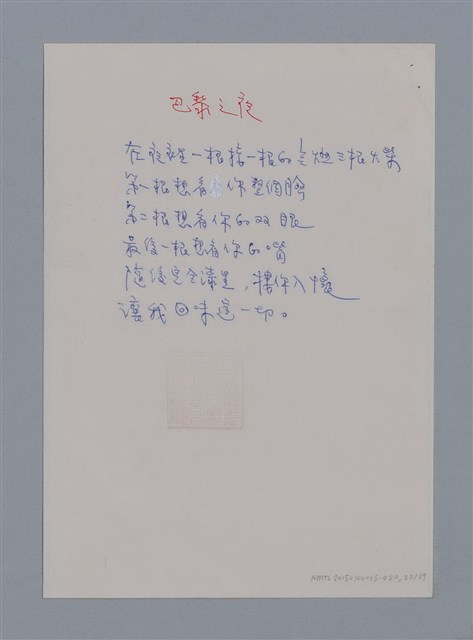 巴黎之夜
在夜裡一根接一根的點燃三根火柴
第一根想看你整個臉
第二根想看你的双眼
最後一根想看你的嘴
隨後完全漆黑，摟你入懷
讓我回味這一切。